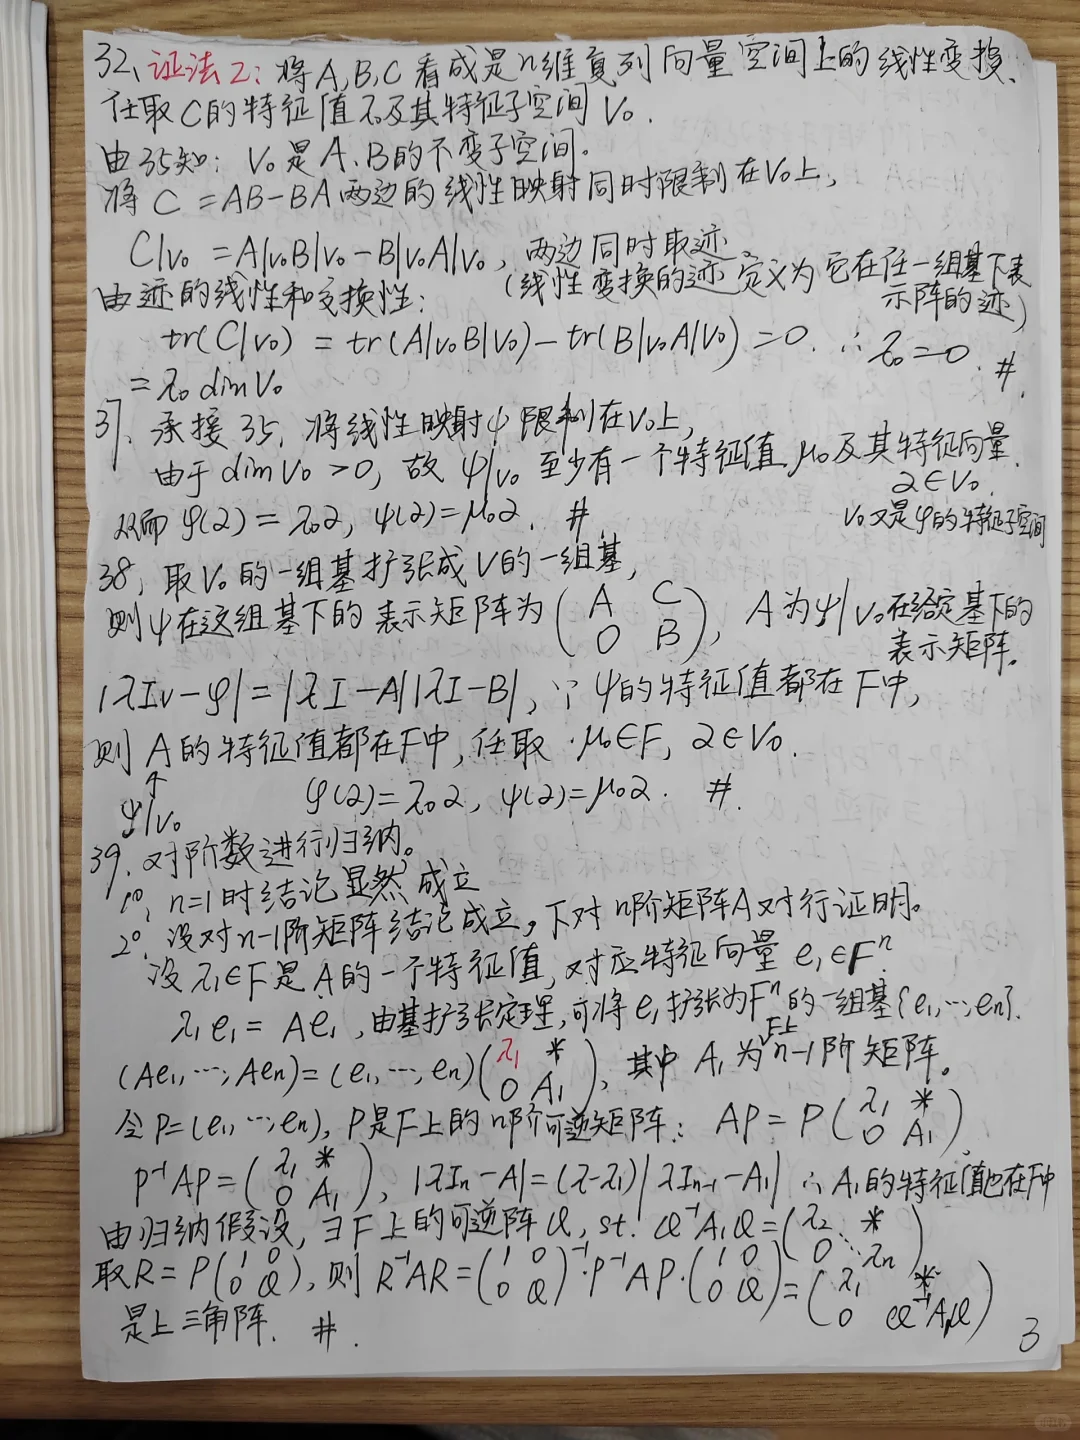 32、证法2：将A,B,C看成是n维复列向量空间上的线性变换、
任取C的特征值λ₀及其特征子空间V₀.
由35知：V₀是A、B的不变子空间。
将C=AB-BA两边的线性映射同时限制在V₀上,
C|v₀ = A|v₀B|v₀-B|v₀A|v₀, 两边同时取迹
(线性变换的迹定义为它在任一组基下表示阵的迹)
由迹的线性和交换性：
tr(C|v₀) = tr(A|v₀B|v₀)-tr(B|v₀A|v₀)=0. ∴ λ₀=0. #
=λ₀dimV₀
37、承接35, 将线性映射ψ限制在V₀上,
由于dimV₀>0, 故ψ|v₀至少有一个特征值μ₀及其特征向量
α∈V₀.
从而φ(α)=λ₀α, ψ(α)=μ₀α. #
V₀又是φ的特征子空间
38、取V₀的一组基扩张成V的一组基,
则ψ在这组基下的表示矩阵为(A C
0 B), A为ψ|v₀在给定基下的
表示矩阵.
|λIv-φ|=|λI-A||λI-B|, ∵ψ的特征值都在F中,
则A的特征值都在F中, 任取μ₀∈F, α∈V₀.
↑
ψ|v₀
φ(α)=λ₀α, ψ(α)=μ₀α. #.
39、对阶数进行归纳。
1°、n=1时结论显然成立
2°、设对n-1阶矩阵结论成立。下对n阶矩阵A对行证明。
设λ₁∈F是A的一个特征值, 对应特征向量e₁∈Fⁿ.
λ₁e₁=Ae₁, 由基扩张定理, 可将e₁扩张为Fⁿ的一组基{e₁,…,en}.
(Ae₁,…,Aen)=(e₁,…,en)(λ₁ *
0 A₁), 其中A₁为F上n-1阶矩阵。
令P=(e₁,…,en), P是F上的n阶可逆矩阵： AP=P(λ₁ *
0 A₁),
P⁻¹AP=(λ₁ *
0 A₁), |λIn-A|=(λ-λ₁)|λIn-1-A₁| ∴A₁的特征值也在F中
由归纳假设, ∃F上的可逆阵Q, st. Q⁻¹A₁Q=(λ₂ *
0 ⋱ λn)
取R=P(1 0
0 Q), 则R⁻¹AR=(1 0
0 Q)⁻¹·P⁻¹AP·(1 0
0 Q)=(λ₁ *
0 Q⁻¹A₁Q)
是上三角阵. #.
3